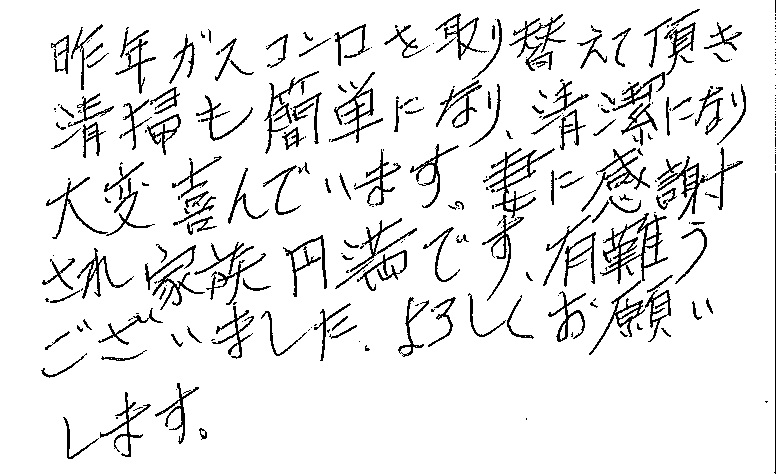 昨年ガスコンロを取り替えて頂き
清掃も簡単になり、清潔になり
大変喜んでいます。妻に感謝
され家族円満です、有難う
ございました、よろしくお願い
します。